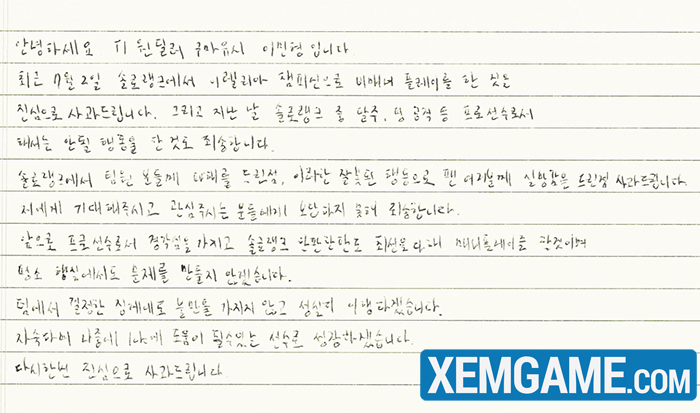 안녕하세요 T1 원딜러 구마유시 이민형 입니다
최근 7월 2일 솔로랭크에서 이렐리아 챔피언으로 비매너 플레이를 한 짓을
진심으로 사과드립니다. 그리고 지난 날 솔로랭크 중 탈주, 우물 등 프로선수로서
해서는 안될 행동을 한것도 죄송합니다.
솔로랭크에서 팀원 분들께 피해를 드린점, 이러한 잘못된 행동으로 팬 여러분께 실망감을 드린점 사과드립니다
저에게 기대해주시고 관심주시는 분들에게 보답하지 못해 죄송합니다.
앞으로 프로선수로서 경각심을 가지고 솔로랭크 한판한판도 최선을 다해 매너플레이를 할것이며
평소 행실에서도 문제를 만들지 않겠습니다.
팀에서 결정한 징계에도 불만을 가지지 않고 성실히 이행하겠습니다.
자숙하며 나중에 팀에 도움이 될수있는 선수로 성장하겠습니다.
다시한번 진심으로 사과드립니다.
XEMGAME.COM